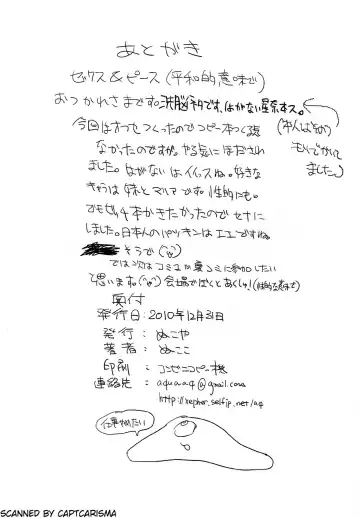 あとがき
セックス&ピース(平和的意味で)
おつかれさまです。洗脳ネタです、はがない星奈本っス。
今回はオフセつくったのでコピー本つくる
なかったのですが。やる気にほだされ
ました。はがないはイイっスね。好きな
キャラは妹とマリアです。性的にも。
でもゼッチ本かきたかったのでセナに
しました。日本人のパツキンはエエですね。
(本人は
もりでかいて
ました。)
そうで
では次はコミュか裏コミに参加したい
思います。会場でぼくとあくしゅ!(性的な意味で)
奥付
発行日:2010年12月31日
発行:ぬこや
著者:ぬここ
印刷:コンビニコピー機
連絡先:aquaa4@gmail.com
http://xepher.selfip.net/a4
仕事やめたい
SCANNED BY CAPTCARISMA